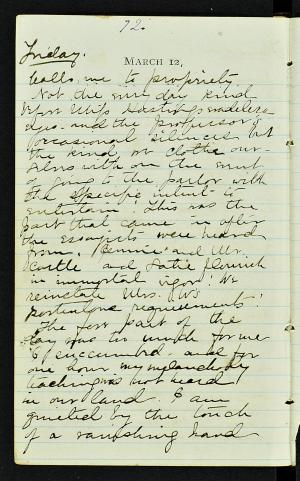 72.
Friday.
MARCH 12,
calls me to propriety
Not the every day kind
Miss Hastings
eyes and the Professor's
occasional silences but
the kind we clothe our-
selves with on the event
of going to the parlor with
the specific intent to
entertain! This was the
part that came in after
the escapets were heard
from. Bennie and Mr.
and Satie flourish
in immortal vigor! We
reinstate Mrs.
requirements!
The first part of the
day was too much for me
I succumbed and for
one hour my melancholy
teaching was not heard
in our land. I am
quieted by the touch
of a vanishing hand